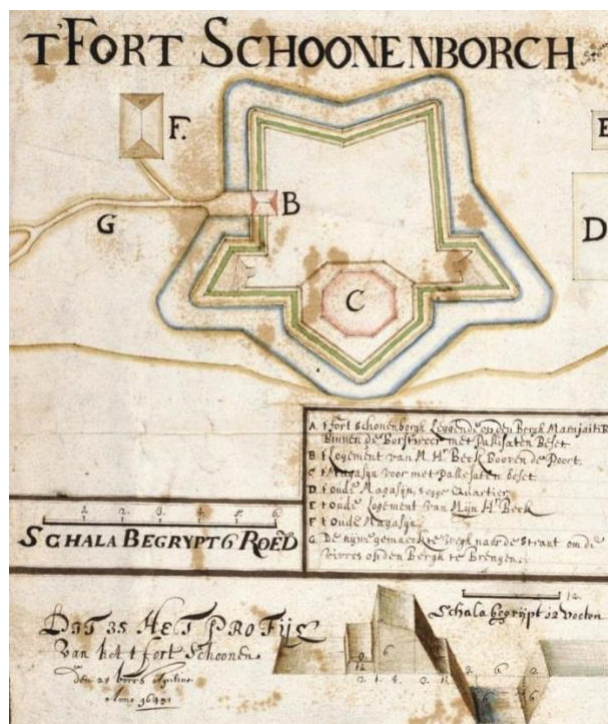 T'FORT SCHOONENBORCH
F.
E
B
G
D
C
A t'fort schonenborgh Leggende op den Bergh
Binnen de Borstweer met Pallisaten Beset
B t'Logement van M Hr Beck Booven de Poort.
C t'Magasijn voor met pallesaten beset.
D t'oude Magasijn, Quartier
E t'oude Logement van Mijn Hr Beck
F t'oude Magasijn
G De nijwe gemaeckte wegh naer de strant om de
vivres op den Bergh te Brengen.
1. 2. 3. 4. 5. 6.
SCHALA BEGRYPT 6 ROED
12.
Schala begrijpt 12 Voeten
DIT IS HET PROFIJL
Van het t'fort Schoonen.
Anno 1649